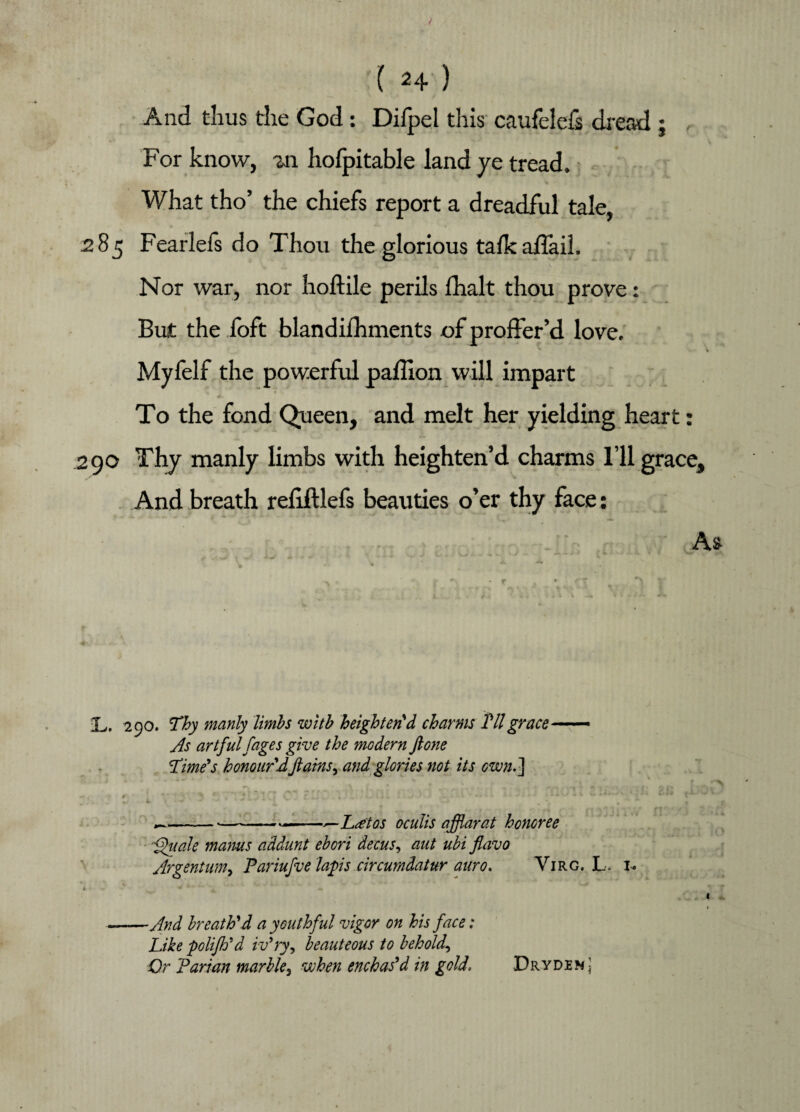 ( 24 )
And thus the God : Diſpel this cauſeleſs dread ;
For know, an hoſpitable land ye tread.
What tho’ the chiefs report a dreadful tale,
285 Fearleſs do Thou the glorious taſk aſſail.
Nor war, nor hoſtile perils ſhalt thou prove :
But the ſoft blandiſhments of proffer’d love.
Myſelf the powerful paſſion will impart
To the fond Queen, and melt her yielding heart :
290 Thy manly limbs with heighten’d charms I’ll grace,
And breath reſiſtleſs beauties o’er thy face :
As
L. 290. Thy manly limbs with heighten’d charms I’ll grace——
As artful ſages give the modern ſtone
Time’s honour’d ſtains, and glories not its own.]
————Lætos oculis afflarat honores
Quale manus addunt ebori decus, aut ubi flavo
Argentum, Pariuſve lapis circumdatur auro. VIRG. L. 1.
——And breath’d a youthful vigor on his face :
Like poliſh’d iv’ry, beauteous to behold,
Or Parian marble, when enchas’d in gold. DRYDEN]